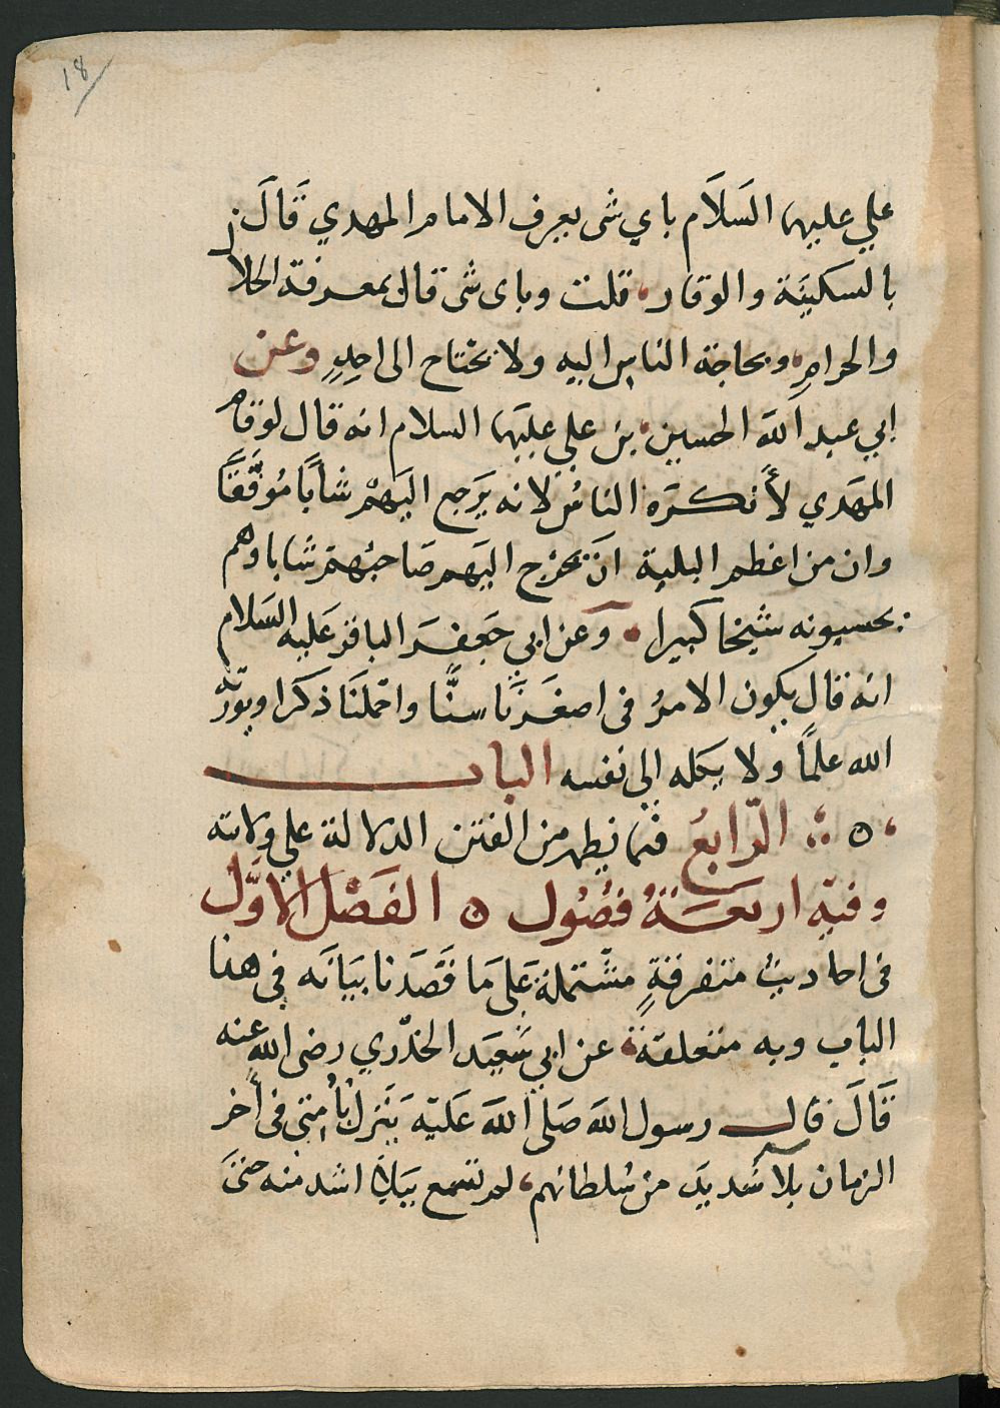 18
علي عليهما السَلَام باي شى يعرف الامام المهدي قَالَ
بالسكينَة والوقار، قلت وباى شى قال بمعرفة الحلال
والحرامِ، وبحاجة الناس اليه ولا يحتاح الى احدٍ وعن
ابي عبد اللهَ الحسين، بن علي عليَهما السلام انه قال لو قام
المهَدي لأَنكرَه الناسُ لانه يَرَجع اليَهمْ شابًا مُوَفَّقًا
وان من اعظم البلية انَ يخرج اليهم صَاحبُهمَ شابا وهم
يحسبونه شيخا كبيرا، وَعن ابي جَعفَر الباقر عَليه السَلام
انه قال يكون الامرُ فى اصغَرنَا سنًّا واجملَنَا ذكَرا ويورّثه
الله علمًا ولا يكله الى نفسه الباب
الرّابعُ فيما يظهر من الفتن الدلالة علي ولايته
وفيه اربعَة فصُول ه الفَصْل الاوَّل
فى احاديث متفرقةٍ مشتملة عَلى مَا قَصَدنا بيَانَه فى هذا
الباب وبه متعلقة، عن ابي سَعيَد الخدّري رضى الله عنه
قَالَ قال رسول الله صَلى اللهَ عَليَه يَنَزل بأُمتي فى أخر
الزمان بلا شَديدَ من سُلطانهم، لم تسمع ببَلاَء اشد منه حتىَ